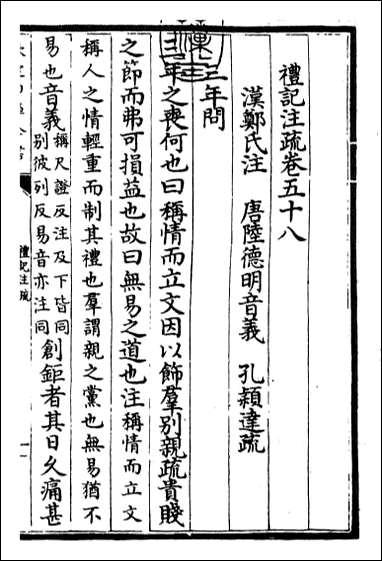 禮記注疏卷五十八
漢鄭氏注　唐陸德明音義　孔穎達疏
三年問
三年之喪何也曰稱情而立文因以飾羣别親疏貴賤
之節而弗可損益也故曰無易之道也注稱情而立文
稱人之情輕重而制其禮也羣謂親之黨也無易猶不
易也音義稱尺證反注及下皆同别彼列反易音亦注同創鉅者其日久痛甚
禮記注疏